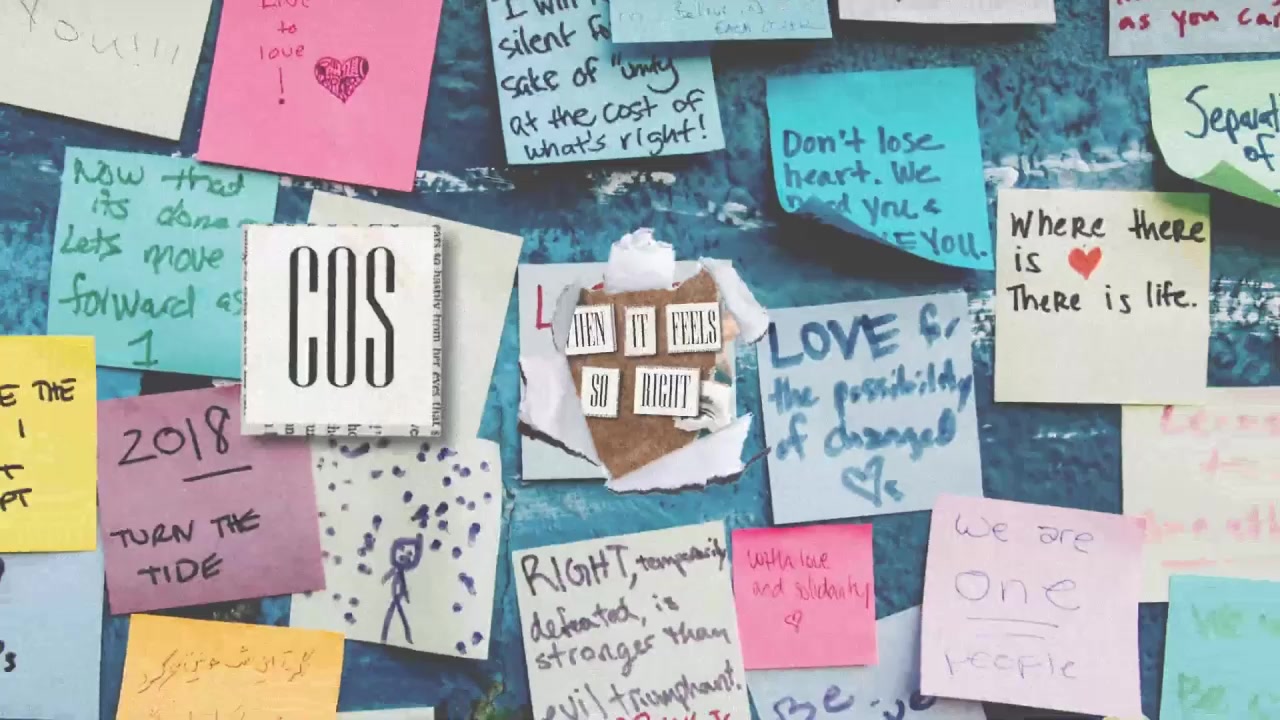 You!!!
Live
to
love
!
silent
sake of "unity
at the cost of
what's right!
Each other
as you can
Now that
its done
Lets move
forward as
1
COS
Don't lose
heart. We
need you &
YOU.
of
Where there
is ❤
There is life.
HEN IT FEELS
SO RIGHT
LOVE for
the possibility
of changed
E THE
I
PT
2018
TURN THE
TIDE
RIGHT, temporarily
defeated, is
stronger than
evil triumphant.
with love
and solidarity
We are
one
people
Be